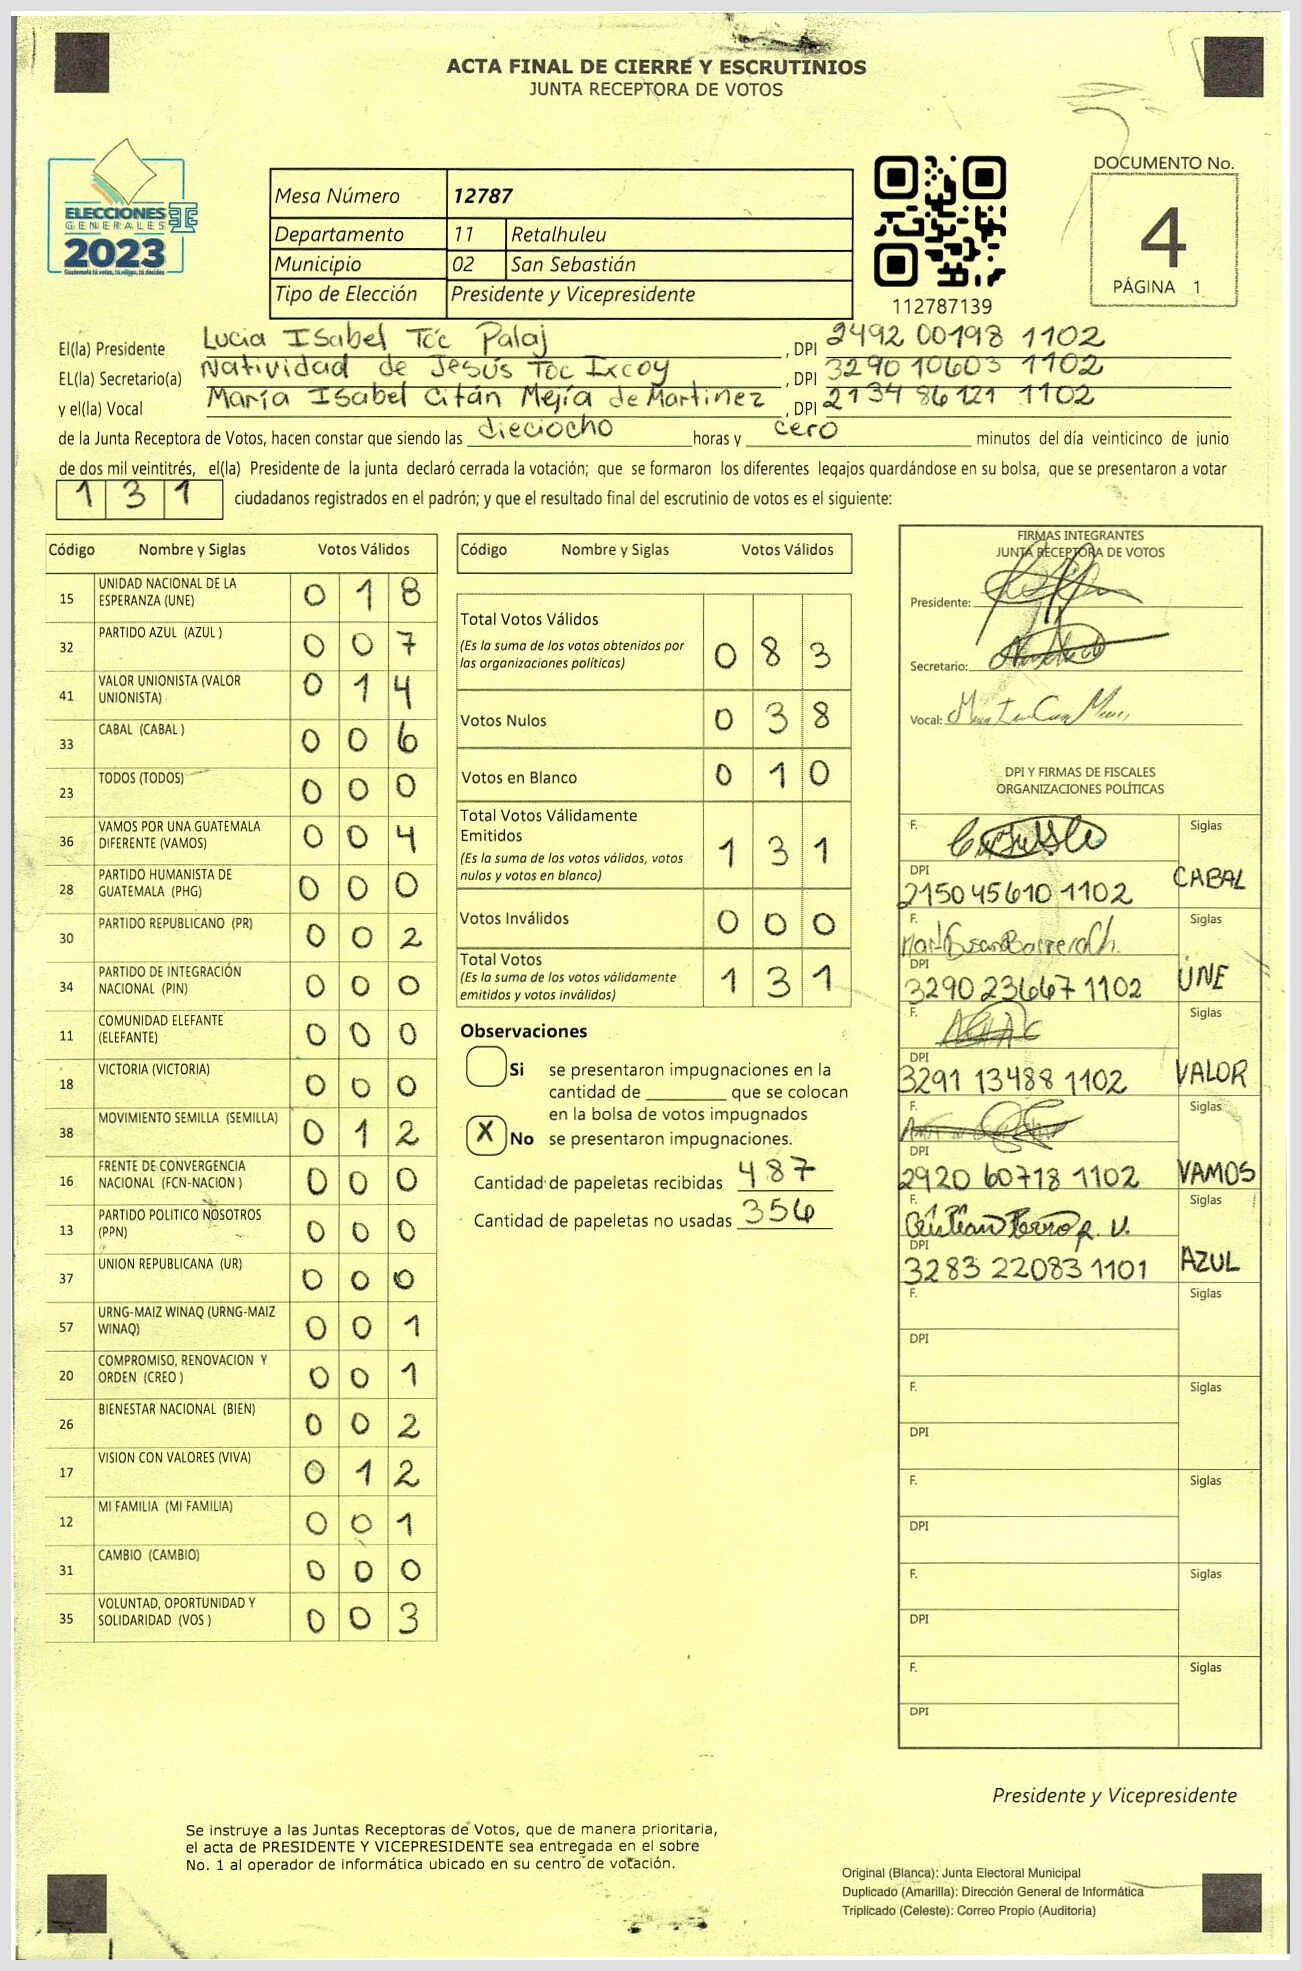 ACTA FINAL DE CIERRE Y ESCRUTINIOS
JUNTA RECEPTORA DE VOTOS
ELECCIONES
GENERALES
2023
Guatemala tú votas, tú eliges, tú decides
Mesa Número 12787
Departamento 11 Retalhuleu
Municipio 02 San Sebastián
Tipo de Elección Presidente y Vicepresidente
112787139
DOCUMENTO No.
4
PÁGINA 1
El(la) Presidente Lucia Isabel Toc Palaj, DPI 2492 00198 1102
EL(la) Secretario(a) Natividad de Jesús Toc Ixcoy, DPI 3290 10603 1102
y el(la) Vocal María Isabel Citán Mejía de Martinez, DPI 2134 86121 1102
de la Junta Receptora de Votos, hacen constar que siendo las dieciocho horas y cero minutos del día veinticinco de junio
de dos mil veintitrés, el(la) Presidente de la junta declaró cerrada la votación; que se formaron los diferentes legajos guardándose en su bolsa, que se presentaron a votar
131 ciudadanos registrados en el padrón; y que el resultado final del escrutinio de votos es el siguiente:
Código Nombre y Siglas Votos Válidos
15 UNIDAD NACIONAL DE LA ESPERANZA (UNE) 0 1 8
32 PARTIDO AZUL (AZUL ) 0 0 7
41 VALOR UNIONISTA (VALOR UNIONISTA) 0 1 4
33 CABAL (CABAL ) 0 0 6
23 TODOS (TODOS) 0 0 0
36 VAMOS POR UNA GUATEMALA DIFERENTE (VAMOS) 0 0 4
28 PARTIDO HUMANISTA DE GUATEMALA (PHG) 0 0 0
30 PARTIDO REPUBLICANO (PR) 0 0 2
34 PARTIDO DE INTEGRACIÓN NACIONAL (PIN) 0 0 0
11 COMUNIDAD ELEFANTE (ELEFANTE) 0 0 0
18 VICTORIA (VICTORIA) 0 0 0
38 MOVIMIENTO SEMILLA (SEMILLA) 0 1 2
16 FRENTE DE CONVERGENCIA NACIONAL (FCN-NACION ) 0 0 0
13 PARTIDO POLITICO NOSOTROS (PPN) 0 0 0
37 UNION REPUBLICANA (UR) 0 0 0
57 URNG-MAIZ WINAQ (URNG-MAIZ WINAQ) 0 0 1
20 COMPROMISO, RENOVACION Y ORDEN (CREO ) 0 0 1
26 BIENESTAR NACIONAL (BIEN) 0 0 2
17 VISION CON VALORES (VIVA) 0 1 2
12 MI FAMILIA (MI FAMILIA) 0 0 1
31 CAMBIO (CAMBIO) 0 0 0
35 VOLUNTAD, OPORTUNIDAD Y SOLIDARIDAD (VOS ) 0 0 3
Código Nombre y Siglas Votos Válidos
Total Votos Válidos
(Es la suma de los votos obtenidos por
las organizaciones políticas) 0 8 3
Votos Nulos 0 3 8
Votos en Blanco 0 1 0
Total Votos Válidamente
Emitidos
(Es la suma de los votos válidos, votos
nulos y votos en blanco) 1 3 1
Votos Inválidos 0 0 0
Total Votos
(Es la suma de los votos válidamente
emitidos y votos inválidos) 1 3 1
Observaciones
Si se presentaron impugnaciones en la
cantidad de ________ que se colocan
en la bolsa de votos impugnados
X No se presentaron impugnaciones.
Cantidad de papeletas recibidas 487
Cantidad de papeletas no usadas 356
FIRMAS INTEGRANTES
JUNTA RECEPTORA DE VOTOS
Presidente:
Secretario:
Vocal:
DPI Y FIRMAS DE FISCALES
ORGANIZACIONES POLÍTICAS
F. Siglas
DPI 2150 45610 1102 CABAL
F. Siglas
DPI 3290 23667 1102 UNE
F. Siglas
DPI 3291 13488 1102 VALOR
F. Siglas
DPI 2920 60718 1102 VAMOS
F. Siglas
DPI 3283 22083 1101 AZUL
F. Siglas
DPI
F. Siglas
DPI
F. Siglas
DPI
F. Siglas
DPI
F. Siglas
DPI
Presidente y Vicepresidente
Se instruye a las Juntas Receptoras de Votos, que de manera prioritaria,
el acta de PRESIDENTE Y VICEPRESIDENTE sea entregada en el sobre
No. 1 al operador de informática ubicado en su centro de votación.
Original (Blanca): Junta Electoral Municipal
Duplicado (Amarilla): Dirección General de Informática
Triplicado (Celeste): Correo Propio (Auditoria)